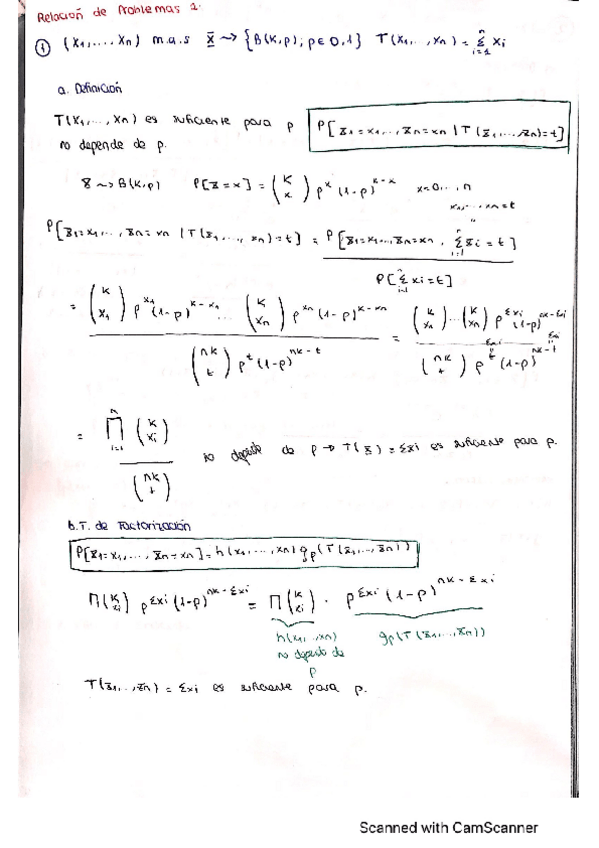 Relación de Problemas 2.
① (X1,..., Xn) m.a.s X → {B(K,p); p∈ 0,1} T(X1,..,Xn) = Σ_{i=1}^{n} Xi
a. Definición
T(X1,...,Xn) es suficiente para p P[X1=x1,..., Xn=xn | T(X1,...,Xn)=t]
no depende de p.
X → B(K,p) P[X=x] = (K x) p^x (1-p)^{K-x} x=0,...,n
x1,...,xn=t
P[X1=x1,..., Xn=xn | T(X1,...,Xn)=t] = P[X1=x1,...,Xn=xn, Σ_{i=1}^{n} Xi = t]
P[Σ_{i=1}^{n} Xi=t]
= (K x1) p^{x1} (1-p)^{K-x1} ... (K xn) p^{xn} (1-p)^{K-xn} = (K xn)...(K xn) p^{Σxi} (1-p)^{nK-Σxi}
(nK t) p^t (1-p)^{nK-t} (nK t) p^t (1-p)^{nK-t}
= Π_{i=1}^{n} (K xi) no depende de p → T(X) = Σxi es suficiente para p.
(nK t)
b. T. de Factorización
P[X1=x1,..., Xn=xn] = h(x1,...,xn) gp(T(X1,...,Xn))
Π(K xi) p^{Σxi} (1-p)^{nK-Σxi} = Π(K xi) · p^{Σxi} (1-p)^{nK-Σxi}
h(x1,..,xn) gp(T(X1,...,Xn))
no depende de
p
T(X1,..,Xn) = Σxi es suficiente para p.
Scanned with CamScanner